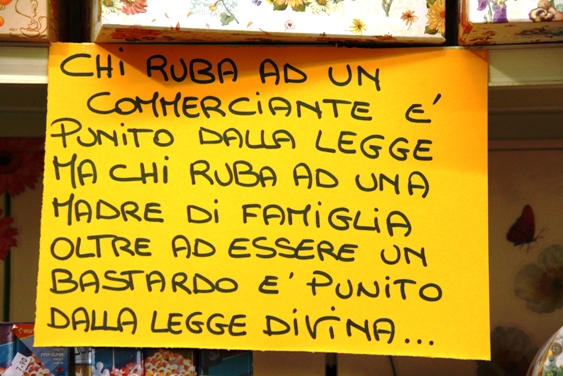 CHI RUBA AD UN
COMMERCIANTE E'
PUNITO DALLA LEGGE
MA CHI RUBA AD UNA
MADRE DI FAMIGLIA
OLTRE AD ESSERE UN
BASTARDO E' PUNITO
DALLA LEGGE DIVINA...